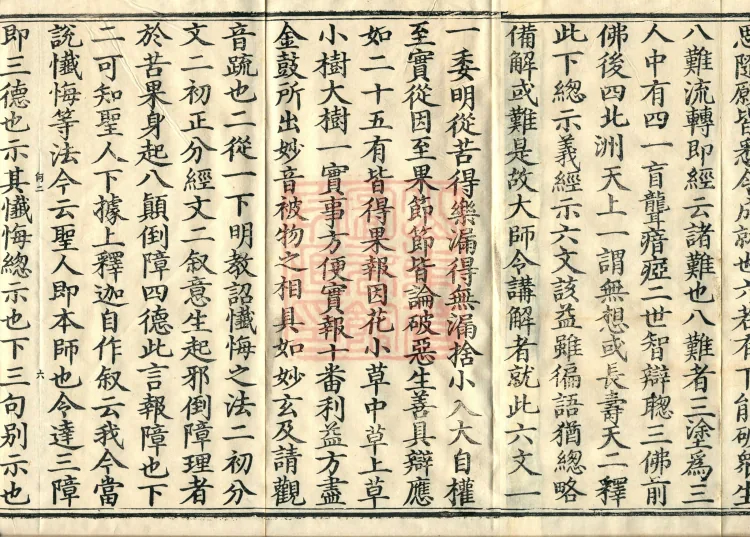 思陰願皆悉令成就也六若有下能破衆生
八難流轉即經云諸難也八難者三塗爲三
人中有四一盲聾瘖瘂二世智辯聦三佛前
佛後四北洲天上一謂無想或長壽天二釋
此下緫示義經示六文該益雖徧語猶緫略
備解或難是故大師令講解者就此六文一
一委明從苦得樂漏得無漏捨小入大自權
至實從因至果節節皆論破惡生善具辯應
如二十五有皆得果報因花小草中草上草
小樹大樹一實事方便實報十番利益方盡
金鼓所出妙音被物之相具如妙玄及請觀
音疏也二從一下明教詔懺悔之法二初分
文二初正分經文二叙意生起邪倒障理者
於苦果身起八顛倒障四德此言報障也下
二可知聖人下據上釋迦自作叙云我今當
說懺悔等法今云聖人即本師也令達三障
即三德也示其懺悔緫示也下三句别示也
何二
六